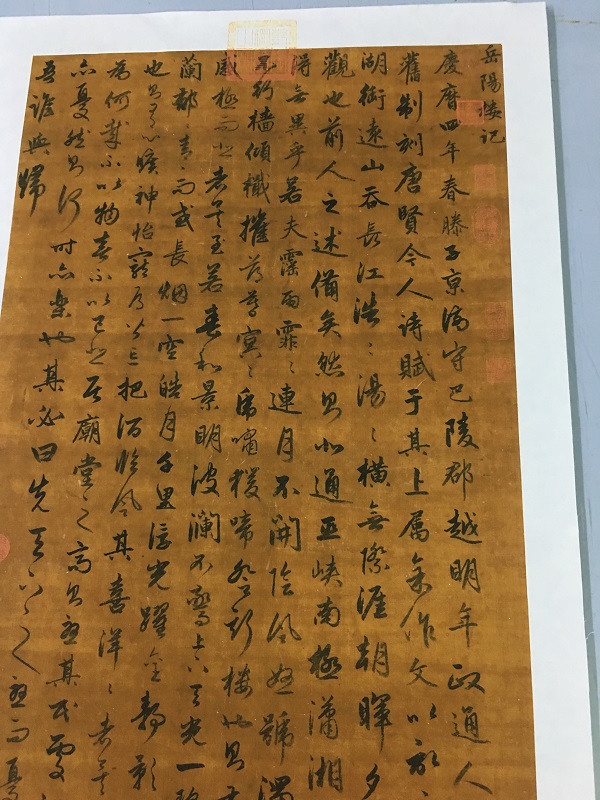 岳陽樓記
慶曆四年春滕子京謫守巴陵郡越明年政通人
舊制刻唐賢今人詩賦于其上屬余作文以記
湖銜遠山吞長江浩〻湯〻橫無際涯朝暉夕
觀也前人之述備矣然則北通巫峽南極瀟湘
得無異乎若夫霪雨霏〻連月不開陰風怒號濁
行檣傾檝摧薄暮冥〻虎嘯猿啼登斯樓也則
感極而悲者矣至若春和景明波瀾不驚上下天光一碧
蘭郁青〻而或長烟一空皓月千里浮光躍金靜影
也則有心曠神怡寵辱皆忘把酒臨風其喜洋〻者矣
為何哉不以物喜不以己悲居廟堂之高則憂其民處
亦憂然則何時而樂也其必曰先天下之憂而憂
吾誰與歸